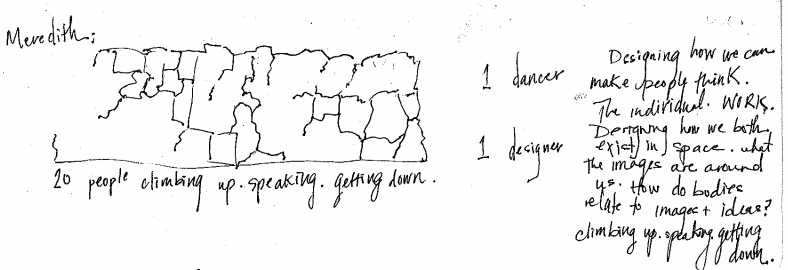 Meredith:
20 people climbing up. speaking. getting down.
1 dancer
1 designer
Designing how we can
make people think.
The individual. WORK.
Designing how we both
exist in space. what
the images are around
us. How do bodies
relate to images + ideas?
climbing up. speaking. getting
down.